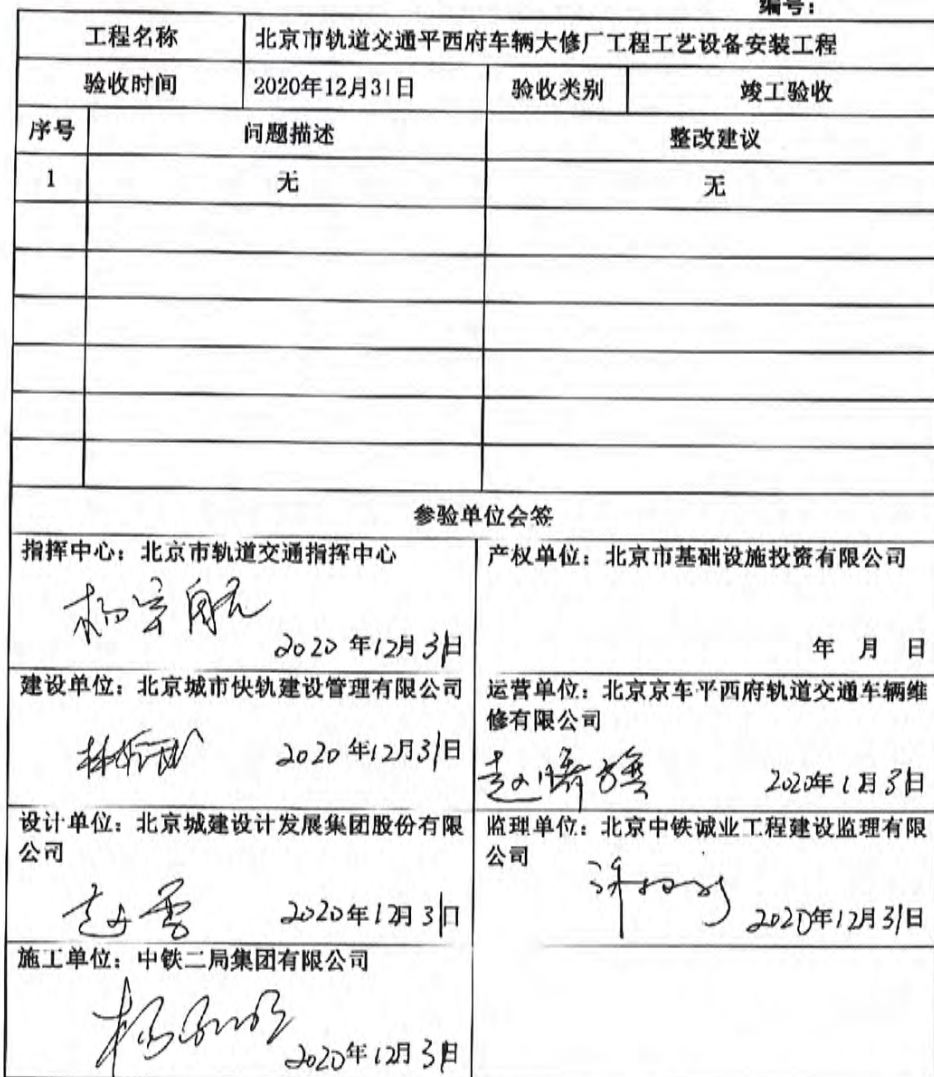 编号：
工程名称 北京市轨道交通平西府车辆大修厂工程工艺设备安装工程
验收时间 2020年12月31日 验收类别 竣工验收
序号 问题描述 整改建议
1 无 无
参验单位会签
指挥中心：北京市轨道交通指挥中心
2020年12月31日
产权单位：北京市基础设施投资有限公司
年 月 日
建设单位：北京城市快轨建设管理有限公司
2020年12月31日
运营单位：北京京车平西府轨道交通车辆维
修有限公司
2020年12月31日
设计单位：北京城建设计发展集团股份有限
公司
2020年12月31日
监理单位：北京中铁诚业工程建设监理有限
公司
2020年12月31日
施工单位：中铁二局集团有限公司
2020年12月31日